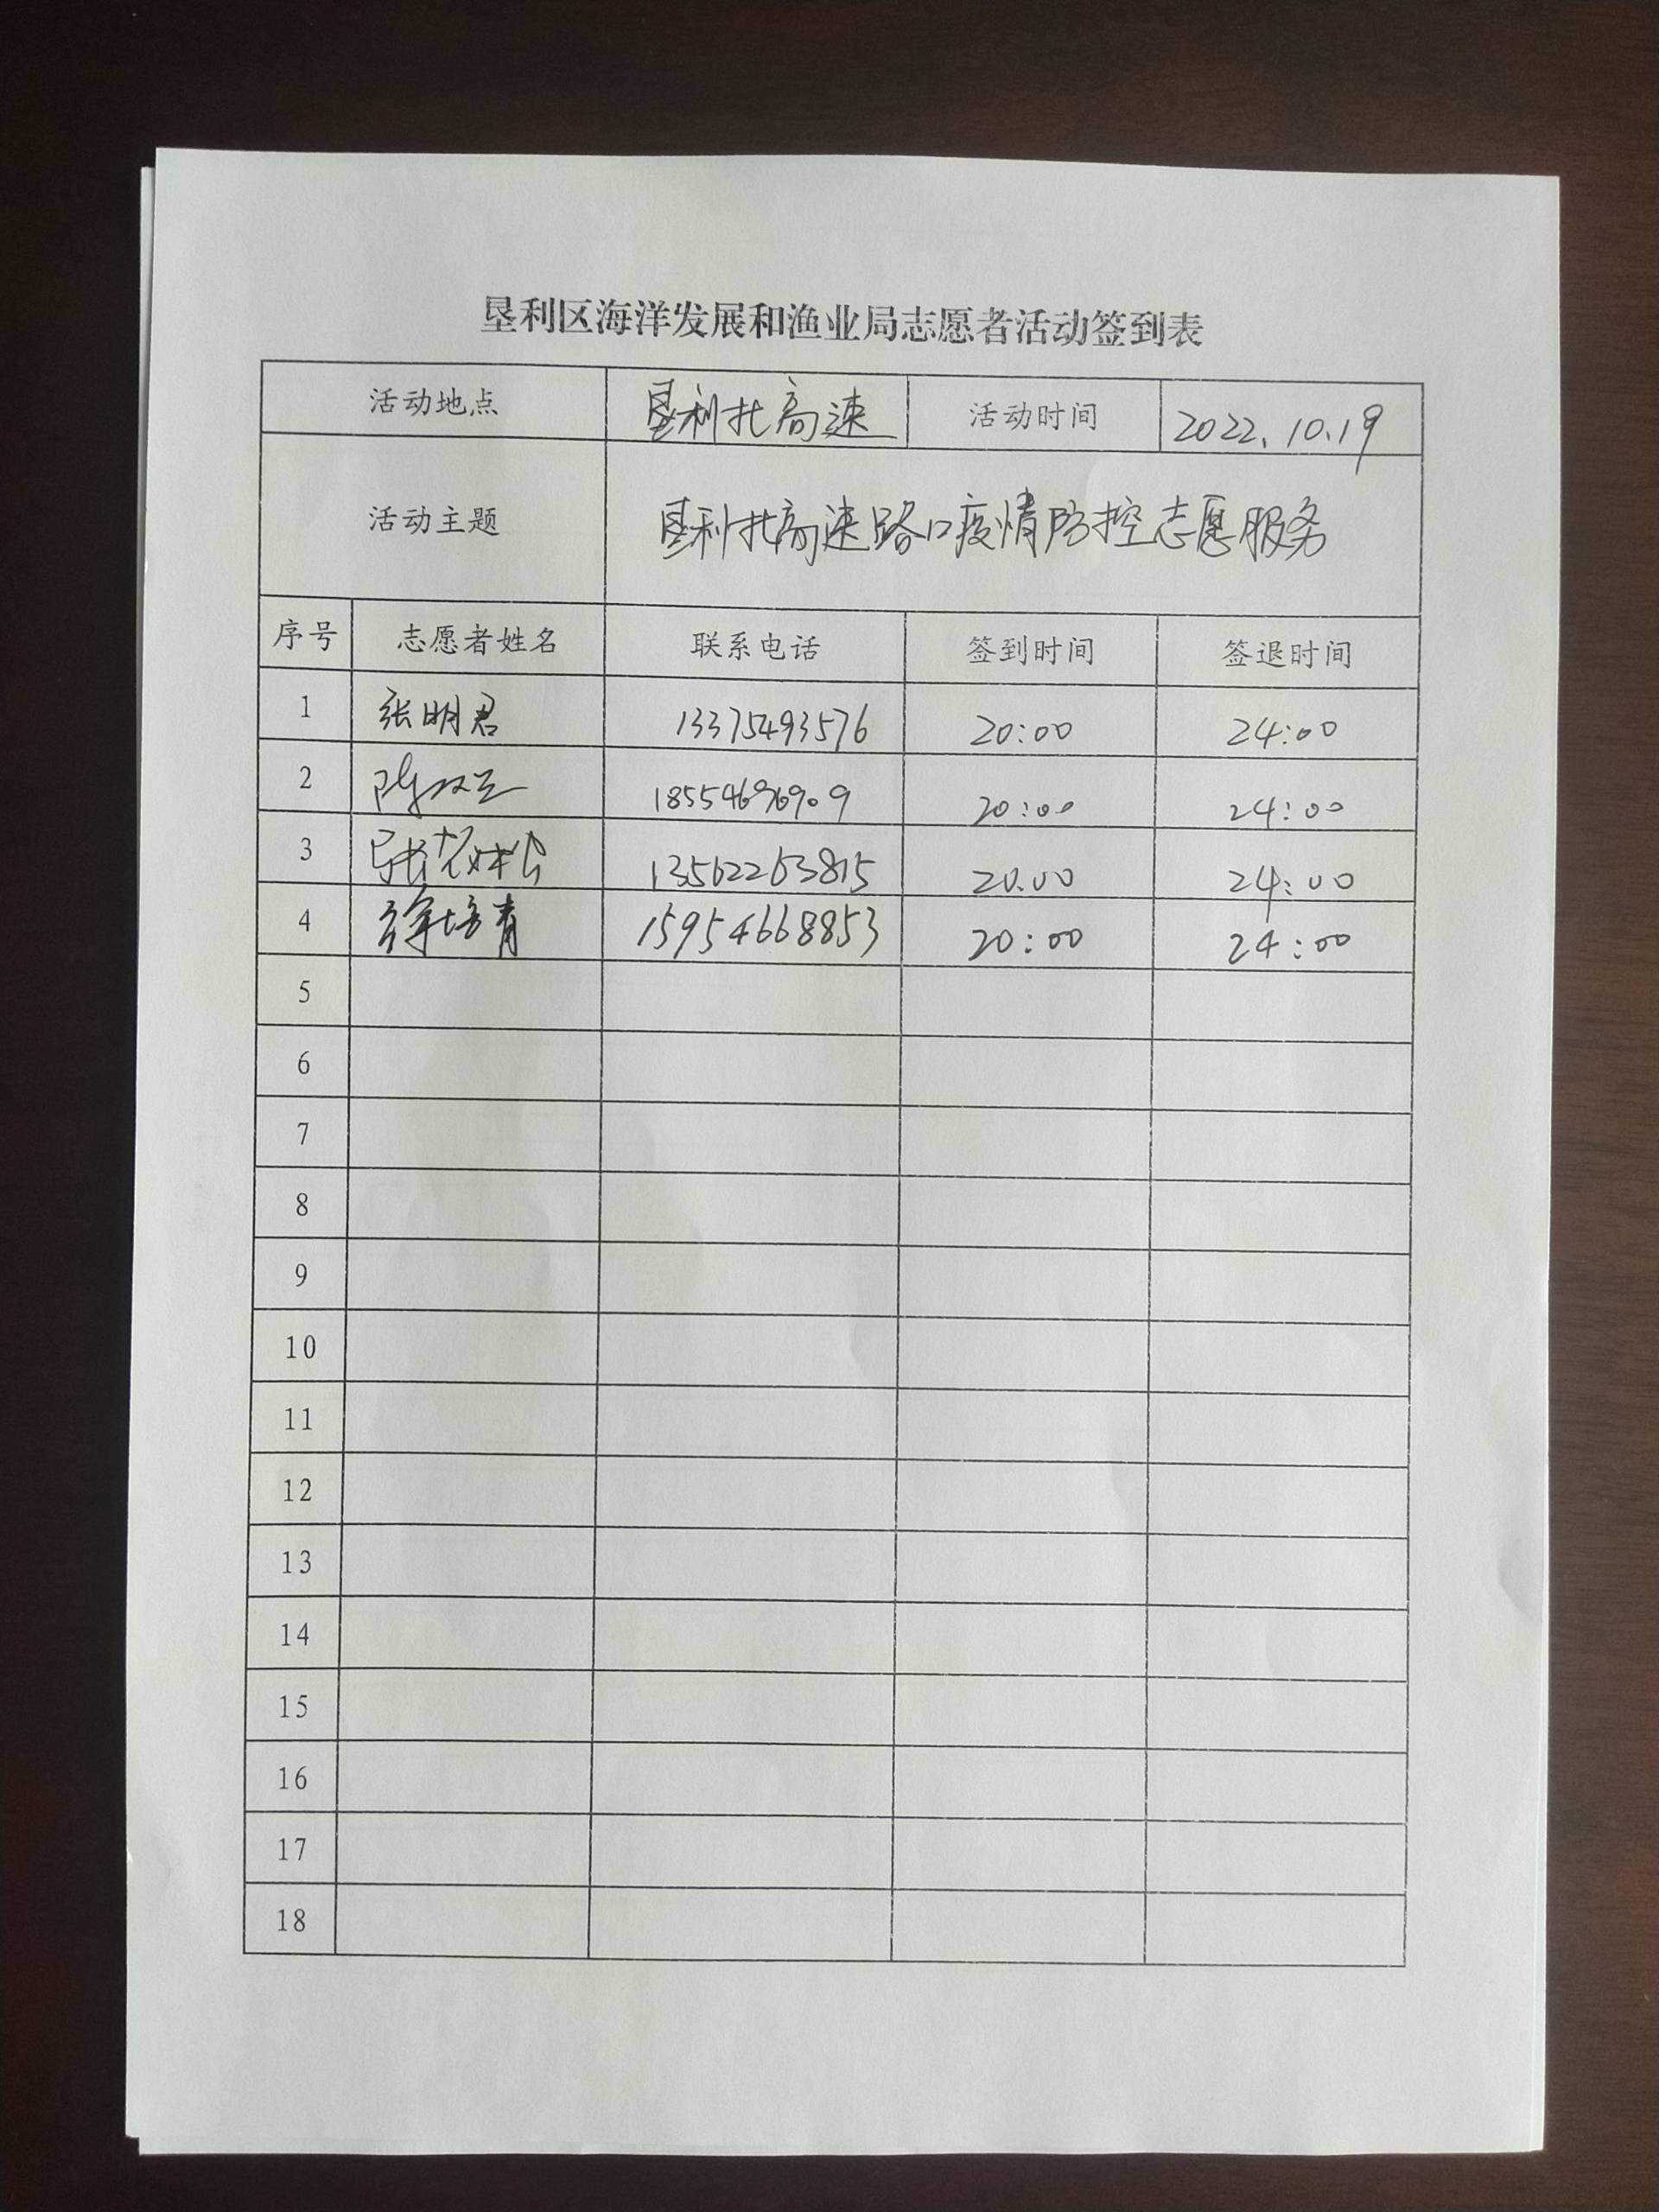 垦利区海洋发展和渔业局志愿者活动签到表
活动地点 垦利北高速 活动时间 2022.10.19
活动主题 垦利北高速路口疫情防控志愿服务
序号 志愿者姓名 联系电话 签到时间 签退时间
1 张明君 13375493576 20:00 24:00
2 18554696909 20:00 24:00
3 13562263815 20:00 24:00
4 徐培青 15954668853 20:00 24:00
5
6
7
8
9
10
11
12
13
14
15
16
17
18